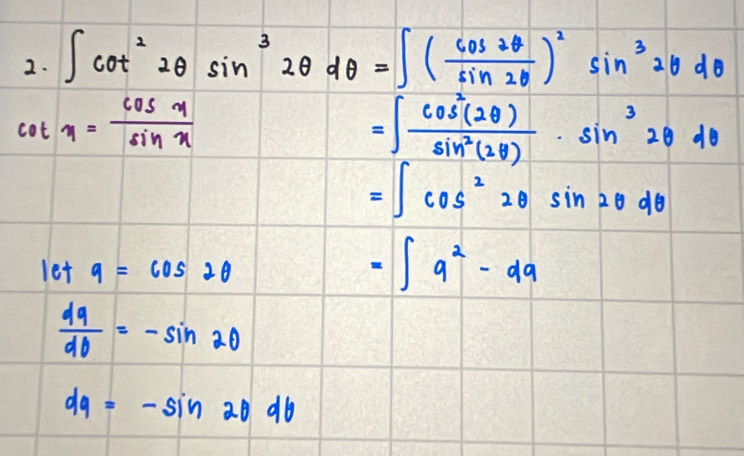 2. ∫ cot² 2θ sin³ 2θ dθ = ∫ (cos 2θ / sin 2θ)² sin³ 2θ dθ
cot x = cos x / sin x
= ∫ cos²(2θ) / sin²(2θ) · sin³ 2θ dθ
= ∫ cos² 2θ sin 2θ dθ
let q = cos 2θ
= ∫ q² - dq
dq/dθ = - sin 2θ
dq = - sin 2θ dθ